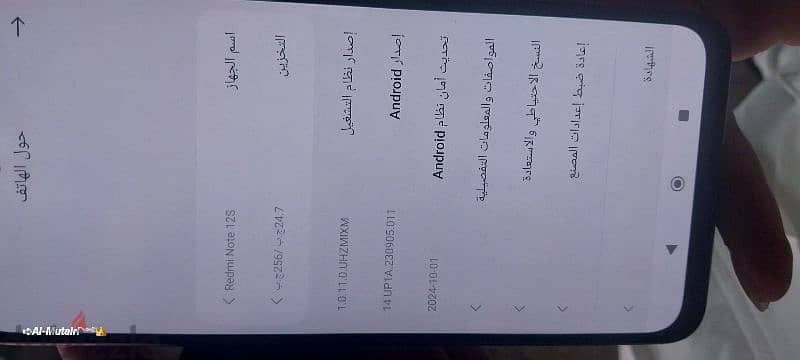 حول الهاتف
اسم الجهاز
Redmi Note 12S
التخزين
24.7ج.ب /256ج.ب
إصدار نظام التشغيل
1.0.11.0.UHZMIXM
إصدار Android
14 UP1A.230905.011
تحديث أمان نظام Android
2024-10-01
المواصفات والمعلومات التفصيلية
النسخ الاحتياطي والاستعادة
إعادة ضبط إعدادات المصنع
الشهادة
Al-Mutairi